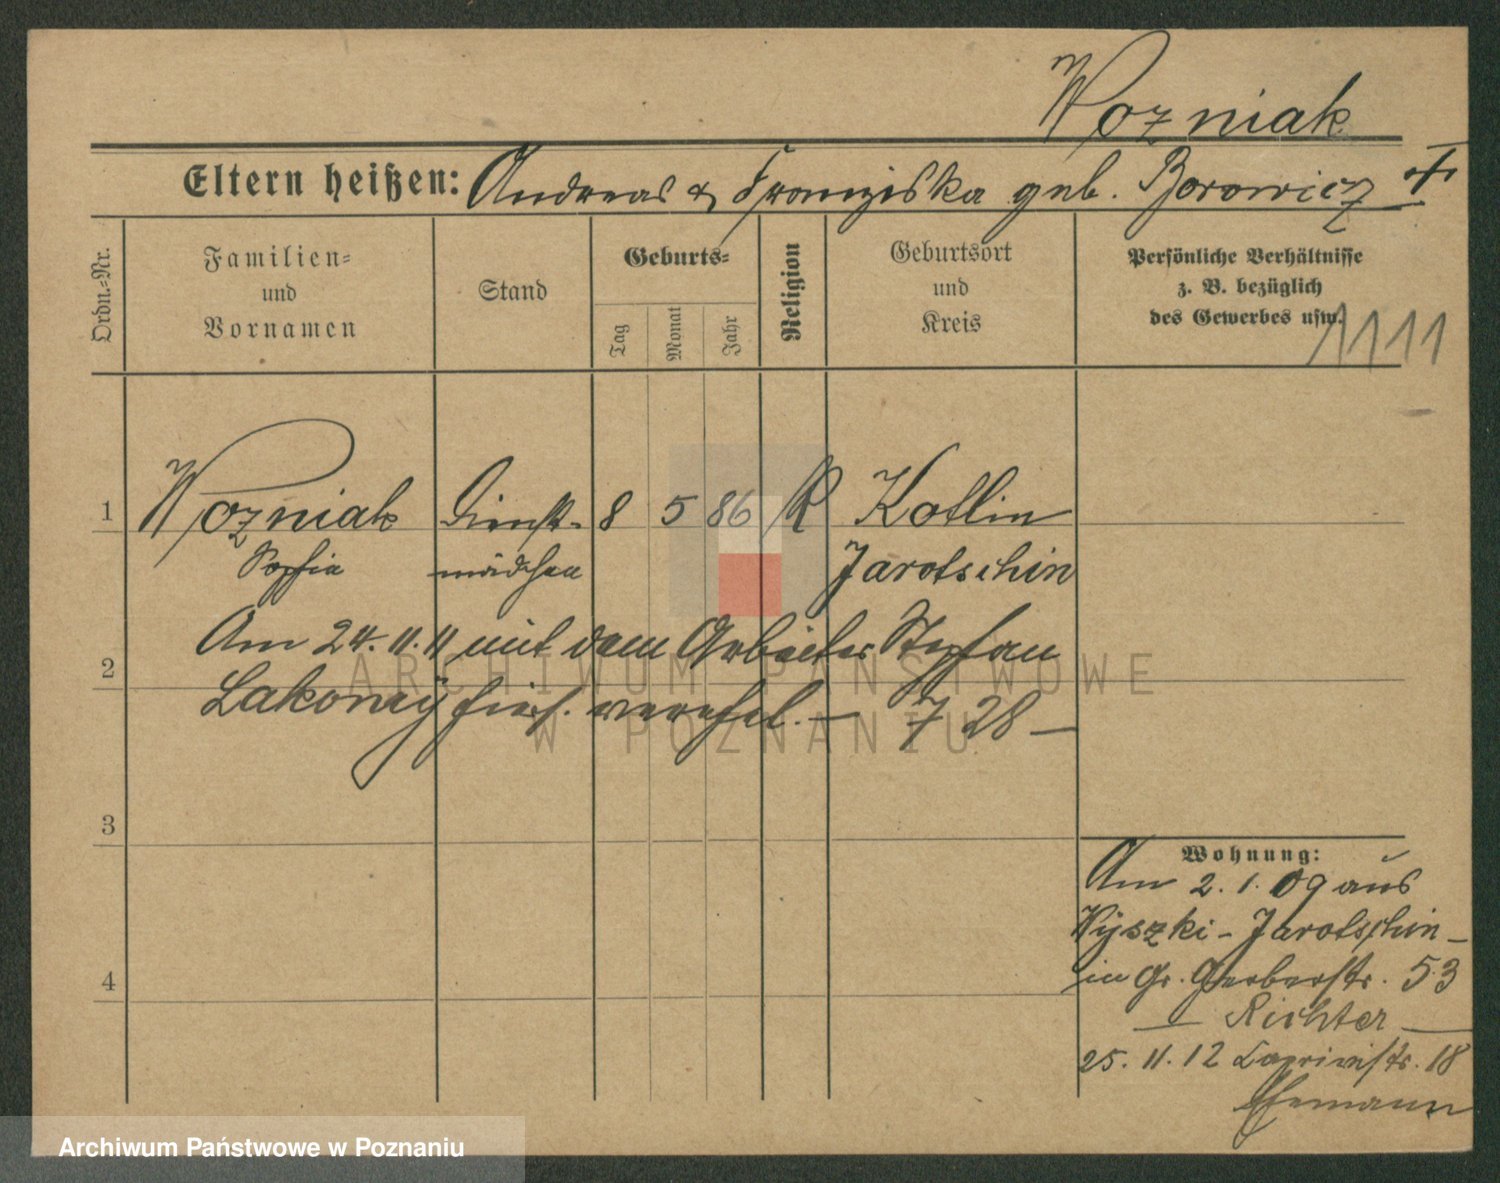 Wozniak
Eltern heißen: Andreas & Franziska geb. Borowicz +
Ordn.-Nr.
Familien-
und
Vornamen
Stand
Geburts-
Tag
Monat
Jahr
Religion
Geburtsort
und
Kreis
Persönliche Verhältnisse
z. B. bezüglich
des Gewerbes usw.
1111
1 Wozniak Dienst- 8 5 86 R Kotlin
Sophia mädchen Jarotschin
Am 24.11.11 mit dem Arbeiter Stephan
2
Lakomy hier verehel. — 728 —
3
4
Wohnung:
Am 2.1.09 aus
Wyszki - Jarotschin -
in Gr. Gerberstr. 53
— Richter —
25.11.12 Caprivistr. 18
Ehemann
ARCHIWUM PAŃSTWOWE
W POZNANIU
Archiwum Państwowe w Poznaniu